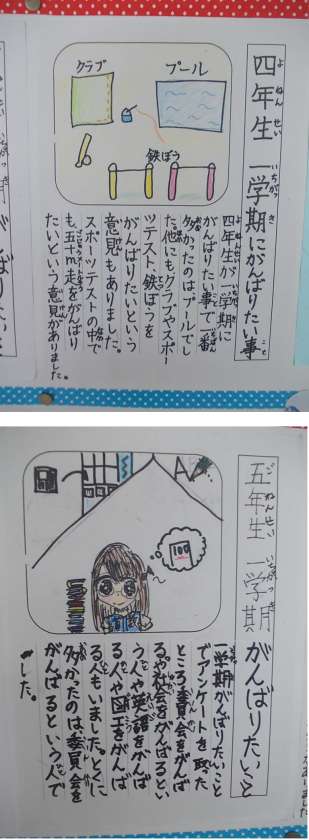 四年生 一学期にがんばりたい事
クラブ
プール
鉄ぼう
四年生が一学期に
がんばりたい事で一番
多かったのはプールでし
た。他にもクラブやスポー
ツテスト鉄ぼうを
がんばりたいという
意見もありました。
スポーツテストの中で
も五十m走をがんばり
たいという意見がありました。
五年生 一学期 がんばりたいこと
100
一学期がんばりたいこと
でアンケートを取った
ところ委員会をがんば
るや社会をがんばるとい
う人や英語をがんば
る人や図工をがんば
る人もいました。とくに
多かったのは委員会を
がんばるという人で
した。